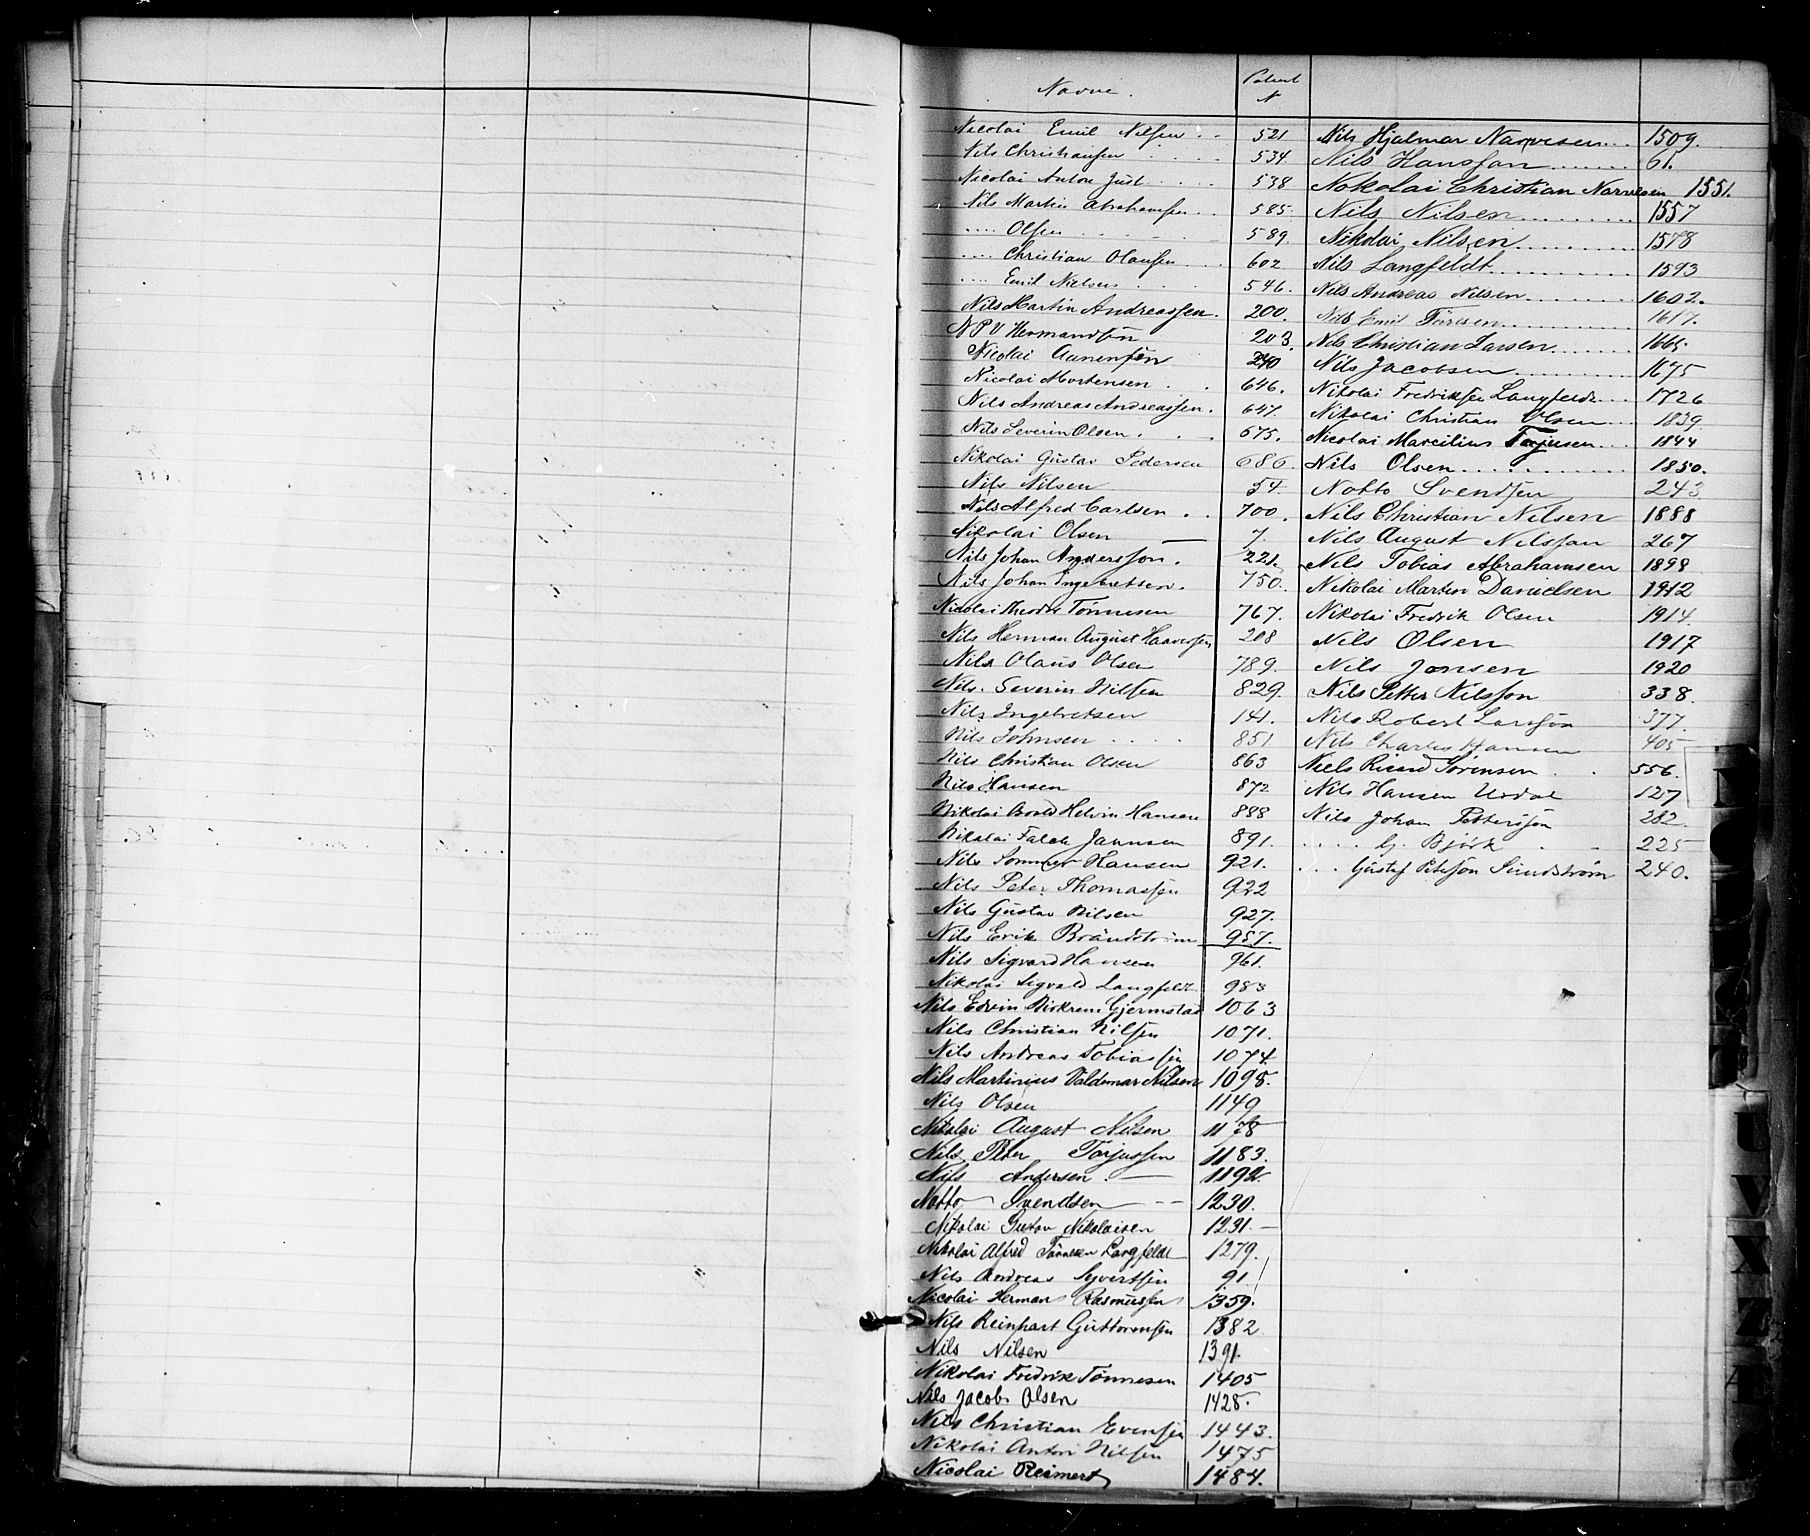 Navne.
Patent
N
Nicolai Emil Nilsen . . 521
Nils Christiansen . . . . 534
Nicolai Anton Just . . . . 538
Nils Martin Abrahamsen . . 585.
.... Olsen . . . . . 589.
.... Christian Olausen . 602
.... Emil Nielsen . . . 546.
Nils Martin Andreassen. 200.
N P V Hermandsen 203.
Nicolai Aanensen 240
Nicolai Mortensen . . 646.
Nils Andreas Andreassen. 647.
Nils Severin Olsen . . . 675.
Nikolai Gustav Pedersen 686.
Nils Nilsen 54.
Nils Alfred Carlsen . . 700.
Nikolai Olsen — 7.
Nils Johan Andersson. 221.
Nils Johan Ingebretsen. 750.
Nicolai Theodor Tønnesen 767.
Nils Herman August Haavorsen 208
Nils Olaus Olsen 789.
Nils. Severin Nilsen 829.
Nils Ingebretsen 141.
Nils Johnsen . . . . 851
Nils Christian Olsen 863
Nils Hansen 872
Nikolai Helvin Hansen 888
Nikolai Falck Jannsen 891.
Nils Sommer Hansen 921.
Nils Peter Thomassen 922
Nils Gustav Nilsen 927.
Nils Erik Brändström 957.
Nils Sigvard Hansen 961.
Nikolai Sigvald Langfeldt 983
Nils Edvin Birkrem Gjermstad 1063
Nils Christian Nilsen 1071.
Nils Andreas Tobiassen 1074.
Nils Martinius Valdemar Nilsen 1098.
Nils Olsen 1149
Nikolai August Nilsen 1178
Nils Peter Torjussen 1183.
Nils Andersen . — 1192.
Notto Svendsen — 1230.
Nikolai Gustav Nikolaisen 1231.
Nikolai Alfred Tønnesen Langfeldt 1279.
Nils Andreas Syvertsen 91.
Nicolai Herman Rasmussen 1359.
Nils Reinhart Guttormsen 1382.
Nils Nilsen 1391.
Nikolai Fredrik Tønnesen 1405
Nils Jacob Olsen 1428.
Nils Christian Evensen 1443.
Nikolai Anton Nilsen 1475
Nicolai Reimert 1484.
Nils Hjalmar Narvesen... 1509.
Nils Hansson ....... 61.
Nokolai Christian Narvesen 1551.
Nils Nilsen ......... 1557
Nikolai Nilsen ......... 1578
Nils Langfeldt ......... 1593
Nils Andreas Nilsen ....... 1602.
Nils Emil ......... 1617.
Nils Christian Larsen ...... 1665.
Nils Jacobsen ........ 1675
Nikolai Fredriksen Langfeldt... 1726
Nikolai Christian Olsen... 1839
Nicolai Marcilius Terjusen... 1844
Nils Olsen ........... 1850.
Notto Svendsen 243
Nils Christian Nilsen 1888
Nils August Nilsson 267
Nils Tobias Abrahamsen 1898
Nikolai Martin Danielsen 1912
Nikolai Fredrik Olsen 1914.
Nils Olsen 1917
Nils Jonsen 1920
Nils Petter Nilsson 338.
Nils Robert Larsson 377.
Nils Charles Hansen 405
Niels Ricard Sørensen . . 556.
Nils Hansen Urdal 127
Nils Johan Pettersson 282.
.... G. Björk . . 225
... Gustaf Petersson Sundström 240.
U
V
X
Z
Æ